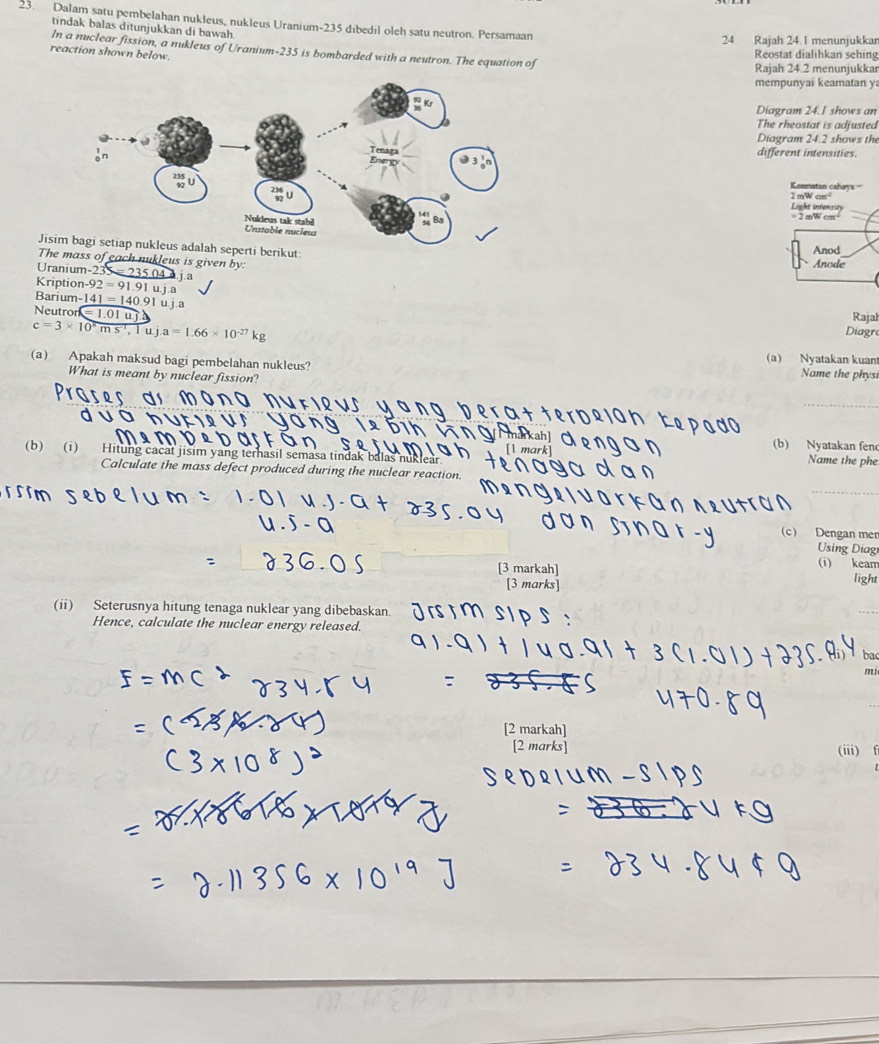 23. Dalam satu pembelahan nukleus, nukleus Uranium-235 dibedil oleh satu neutron. Persamaan
tindak balas ditunjukkan di bawah.
In a nuclear fission, a nukleus of Uranium-235 is bombarded with a neutron. The equation of
reaction shown below.
92 36 Kr
1 0 n
235 92 U
236 92 U
Tenaga
Energy
3 1 0 n
141 56 Ba
Nukleus tak stabil
Unstable nucleus
Jisim bagi setiap nukleus adalah seperti berikut:
The mass of each nukleus is given by:
Uranium-235 = 235.04 u.j.a
Kription-92 = 91.91 u.j.a
Barium-141 = 140.91 u.j.a
Neutron = 1.01 u.j.a
c = 3 × 10⁸ m s⁻¹, 1 u.j.a = 1.66 × 10⁻²⁷ kg
(a) Apakah maksud bagi pembelahan nukleus?
What is meant by nuclear fission?
Proses di mana nukleus yang berat terbelah kepada
dua nukleus yang lebih ringan
[1 markah]
[1 mark]
dengan
membebaskan sejumlah tenaga dan
mengeluarkan neutron
dan sinar-y
(b) (i) Hitung cacat jisim yang terhasil semasa tindak balas nuklear.
Calculate the mass defect produced during the nuclear reaction.
sebelum = 1.01 u.j.a + 235.04
u.j.a
= 236.05
[3 markah]
[3 marks]
(ii) Seterusnya hitung tenaga nuklear yang dibebaskan.
Hence, calculate the nuclear energy released.
Jisim slps :
91.91 + 140.91 + 3(1.01) + 235.04
= 470.89
E = mc²
234.84
(3×10⁸)²
= 2.11356 × 10¹⁹ J
[2 markah]
[2 marks]
sebelum - slps
= 234.84 kg
24 Rajah 24.1 menunjukkan
Reostat dialihkan sehing
Rajah 24.2 menunjukkan
mempunyai keamatan ya
Diagram 24.1 shows an
The rheostat is adjusted
Diagram 24.2 shows the
different intensities.
Keamatan cahaya =
2 mW cm⁻²
Light intensity
= 2 mW cm⁻²
Anod
Anode
Rajah
Diagra
(a) Nyatakan kuant
Name the physi
(b) Nyatakan feno
Name the phe
(c) Dengan men
Using Diagr
(i) keam
light
bac
mi
(iii) f